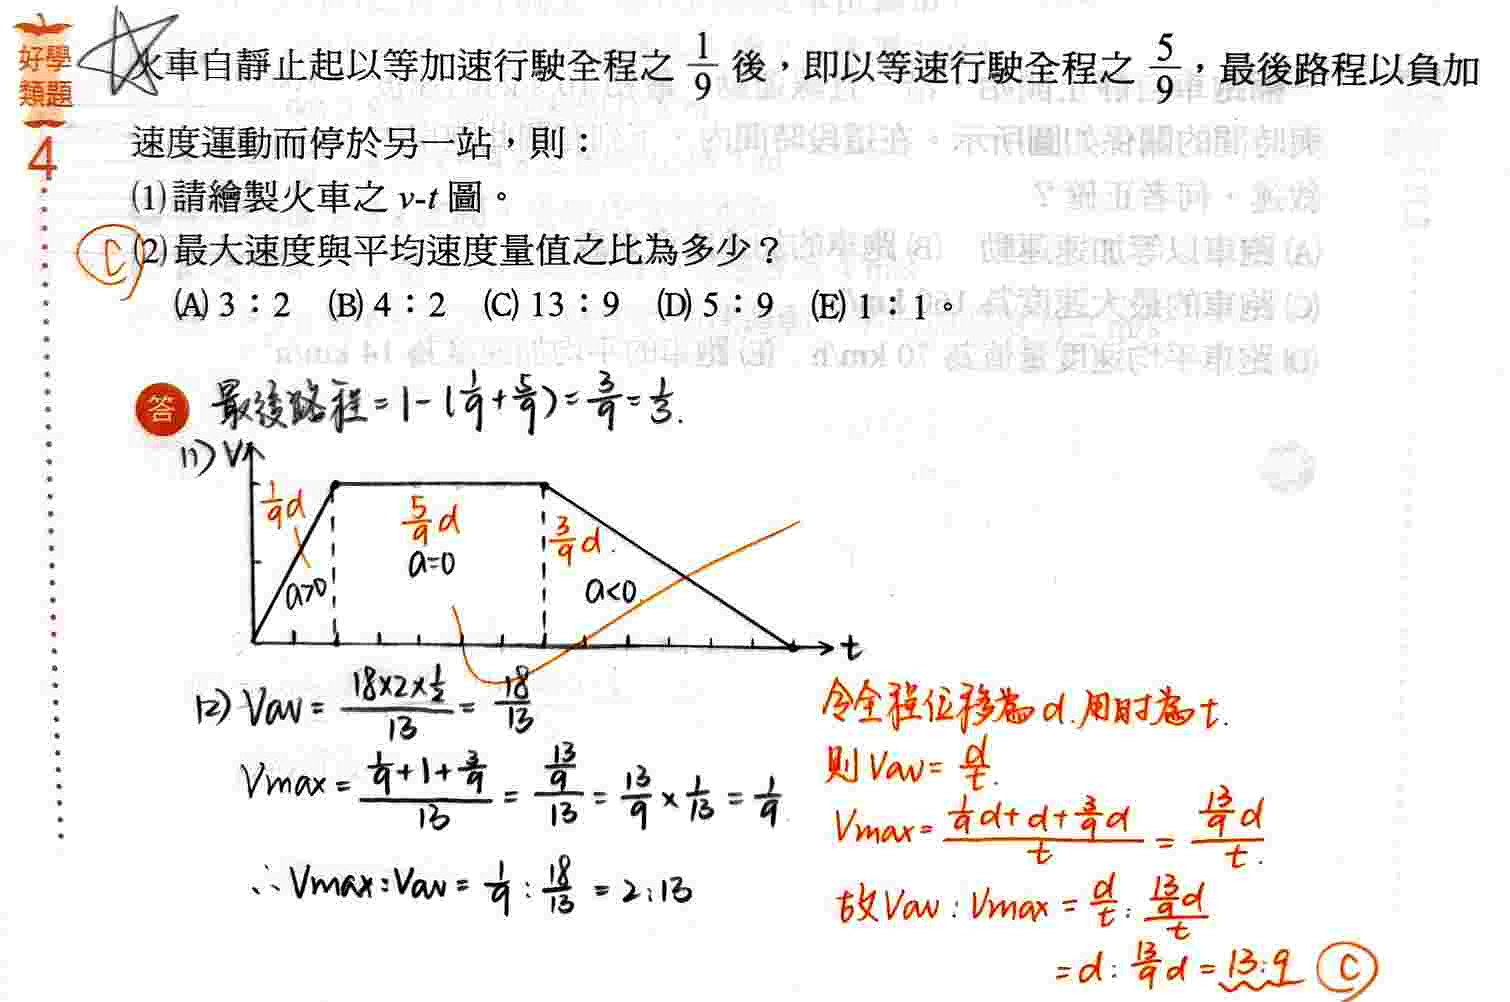 好學
類題
4
火車自靜止起以等加速行駛全程之 1/9 後，即以等速行駛全程之 5/9，最後路程以負加
速度運動而停於另一站，則：
(1)請繪製火車之 v-t 圖。
C
(2)最大速度與平均速度量值之比為多少？
(A) 3：2 (B) 4：2 (C) 13：9 (D) 5：9 (E) 1：1。
答 最後路程=1-(1/9+5/9)=3/9=1/3.
(1) V
1/9d
5/9d
3/9d.
a>0
a=0
a<0
t
(2) Vav = 18×2×1/2 / 13 = 18/13
Vmax = 1/9+1+3/9 / 13 = 13/9 / 13 = 13/9 × 1/13 = 1/9
∴ Vmax:Vav = 1/9 : 18/13 = 2:13
令全程位移為d.用時為t.
則 Vav = d/t.
Vmax = 1/9d+d+3/9d / t = 13/9d / t.
故 Vav : Vmax = d/t : 13/9d / t
= d : 13/9d = 13:9 C